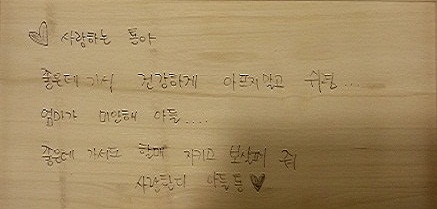 ♡ 사랑하는 튼아
좋은데 가서 건강하게 아프지말고 쉬렴...
엄마가 미안해 아들....
좋은데 가서도 할머 지키고 보살펴 줘
사랑한다 아들튼♥